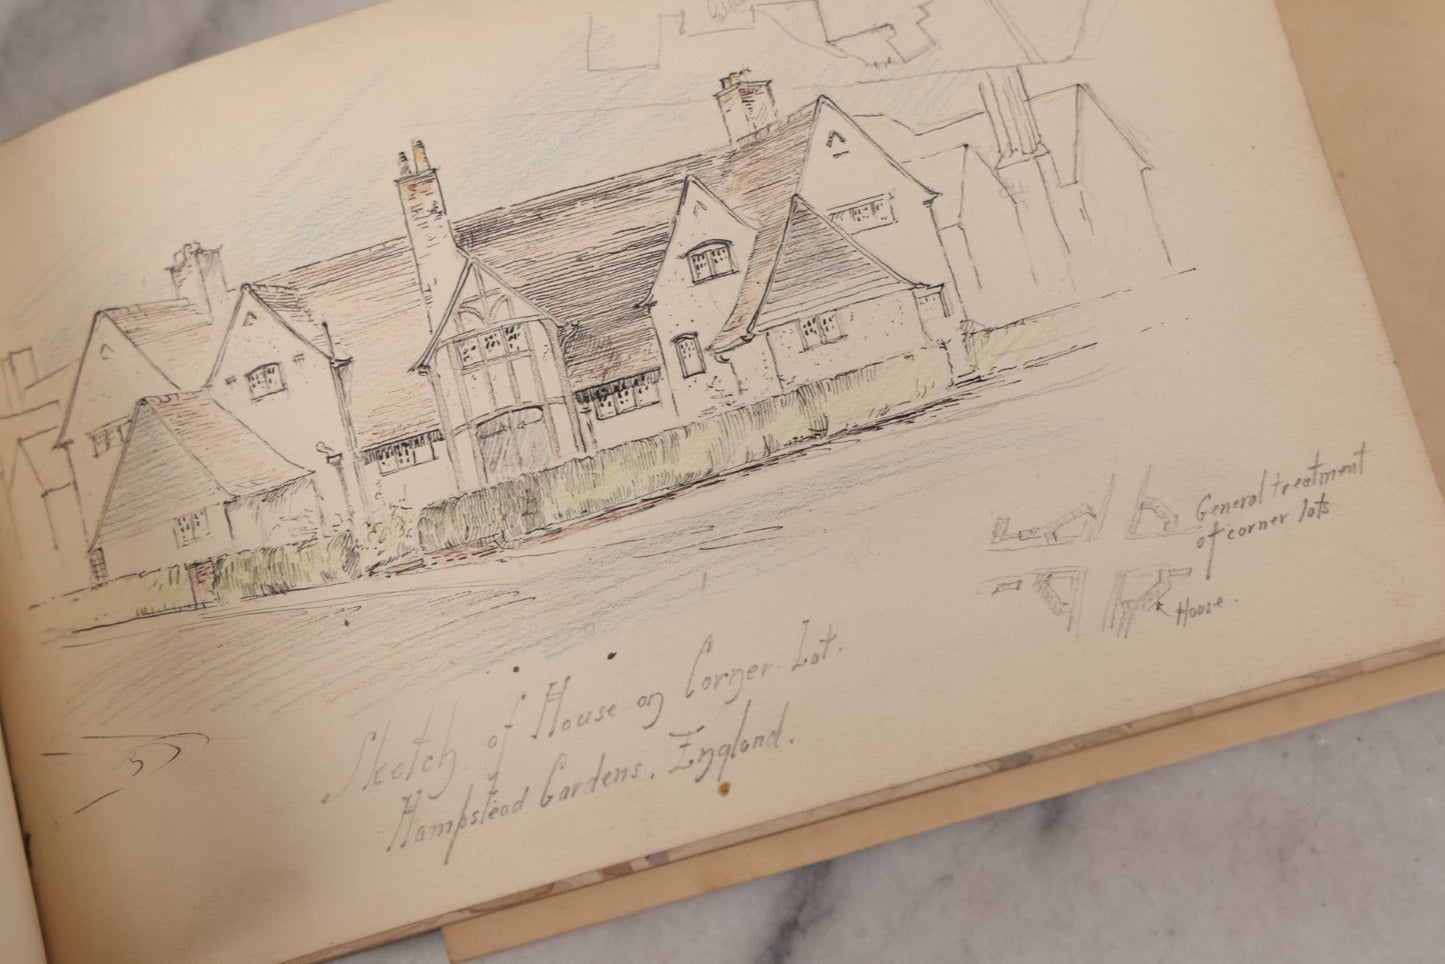 General treatment
of corner lots
House.
Sketch of House on Corner Lot.
Hampstead Gardens. England.